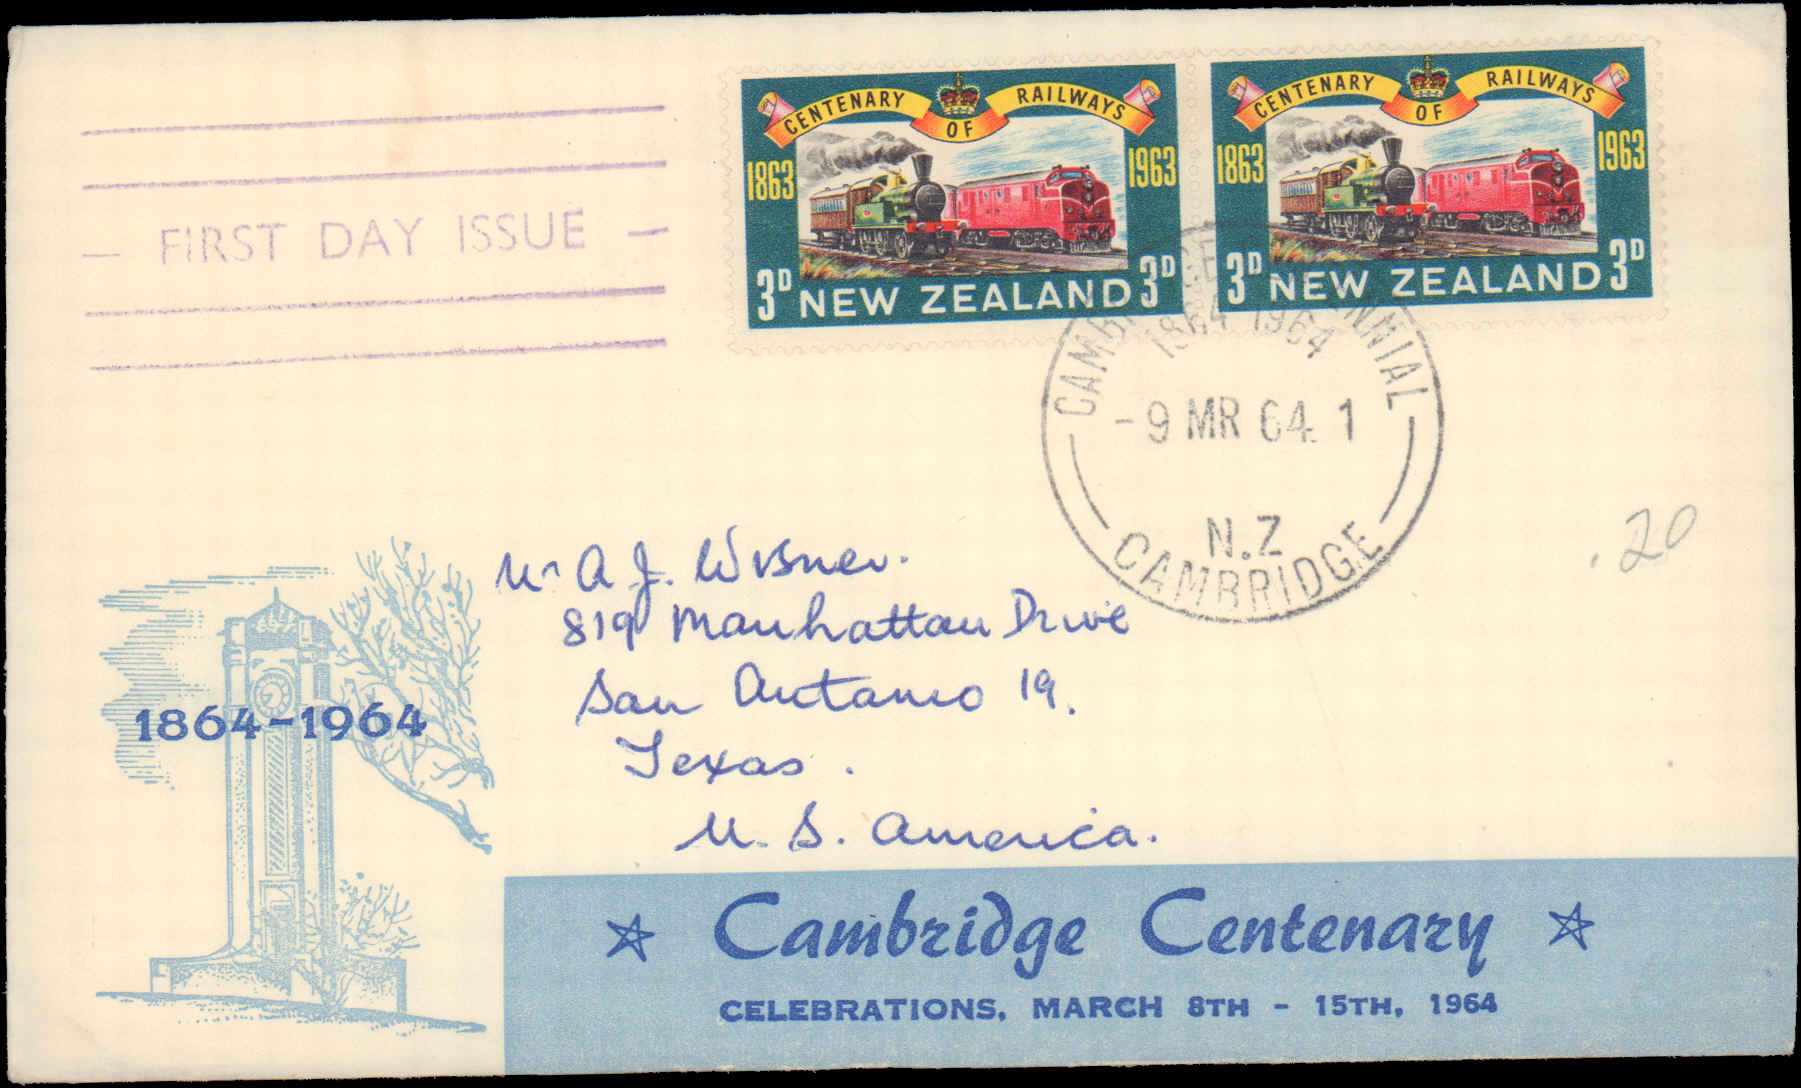 CENTENARY OF RAILWAYS
1863 1963
3D NEW ZEALAND 3D
CENTENARY OF RAILWAYS
1863 1963
3D NEW ZEALAND 3D
— FIRST DAY ISSUE —
1864 1964
-9 MR 64. 1
N.Z
CAMBRIDGE
.20
Mr A J. Wisner.
819 Manhattan Drive
San Antonio 19.
Texas.
U. S. America.
1864-1964
Cambridge Centenary
CELEBRATIONS, MARCH 8TH - 15TH, 1964